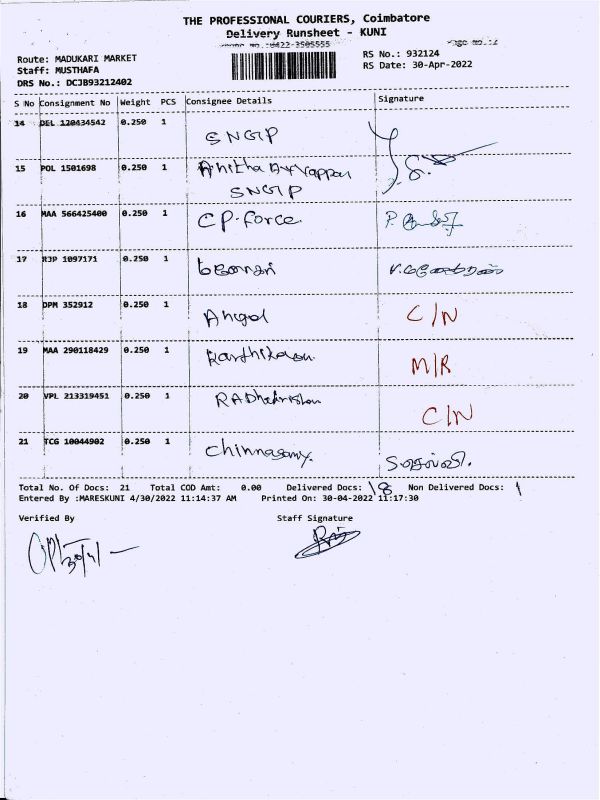 THE PROFESSIONAL COURIERS, Coimbatore
Delivery Runsheet - KUNI
Phone No.:0422-3505555
Route: MADUKARI MARKET
RS No.: 932124
Staff: MUSTHAFA
RS Date: 30-Apr-2022
DRS No.: DCJB93212402
S No Consignment No Weight PCS Consignee Details Signature
14 DEL 120434542 0.250 1
SNGIP
15 POL 1501698 0.250 1 Anitha Ayyappan
SNGIP
16 MAA 566425400 0.250 1 CP-Force
17 RJP 1097171 0.250 1
18 DPM 352912 0.250 1 C/N
19 MAA 290118429 0.250 1 Karthikason M/R
20 VPL 213319451 0.250 1 RADhakrishan C/N
21 TCG 10044902 0.250 1 Chinnasamy.
Total No. Of Docs: 21 Total COD Amt: 0.00 Delivered Docs: 18 Non Delivered Docs: 1
Entered By :MARESKUNI 4/30/2022 11:14:37 AM Printed On: 30-04-2022 11:17:30
Verified By Staff Signature